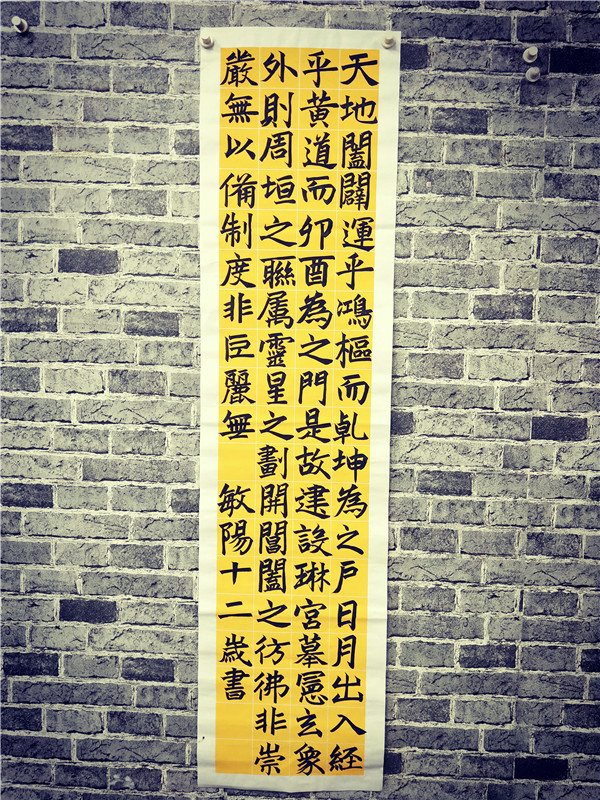 天地闔闢運乎鴻樞而乹坤為之户日月出入経
乎黄道而卯酉為之門是故建設琳宮摹憲玄象
外則周垣之聯属靈星之劃開閶闔之彷彿非崇
嚴無以備制度非巨麗無 敏陽十二歲書